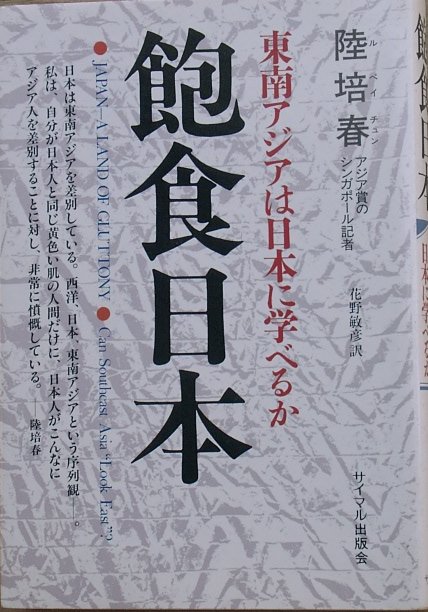 陸培春
ルペイチュン
アジア賞の
シンガポール記者
花野敏彦訳
サイマル出版会
東南アジアは日本に学べるか
飽食日本
●JAPAN—A LAND OF GLUTTONY ●Can Southeast Asia “Look East”?
日本は東南アジアを差別している。西洋、日本、東南アジアという序列観——。
私は、自分が日本人と同じ黄色い肌の人間だけに、日本人がこんなに
アジア人を差別することに対し、非常に憤慨している。——陸培春
飽食日本